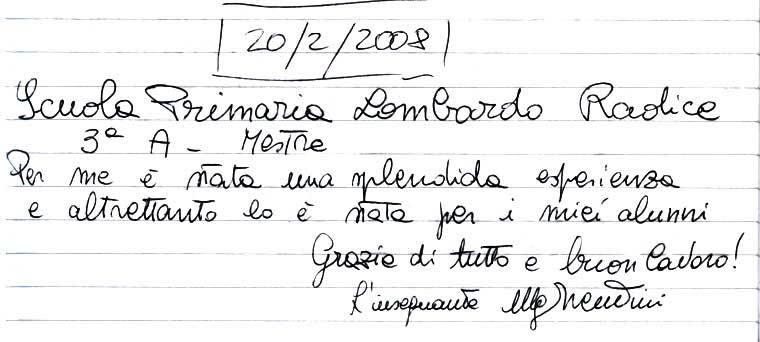 20/2/2008
Scuola Primaria Lombardo Radice
3ª A - Mestre
Per me è stata una splendida esperienza
e altrettanto lo è stata per i miei alunni
Grazie di tutto e buon lavoro!
L'insegnante